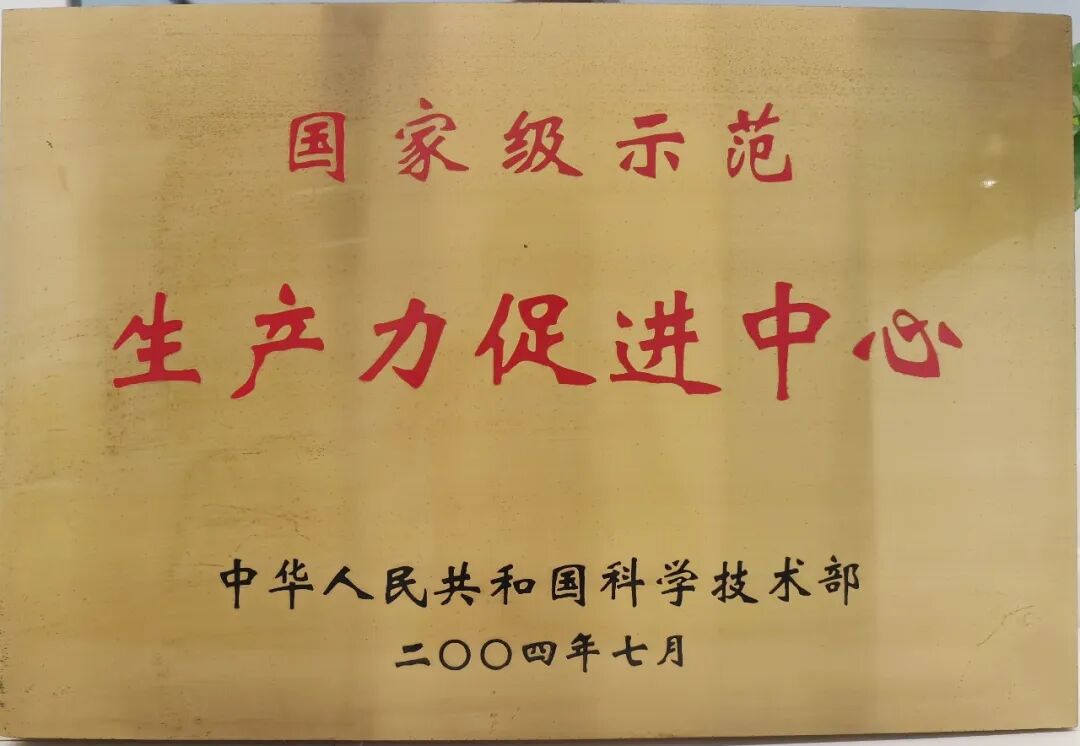 国家级示范
生产力促进中心
中华人民共和国科学技术部
二〇〇四年七月